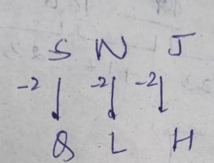 S N J
-2 -2 -2
Q L H